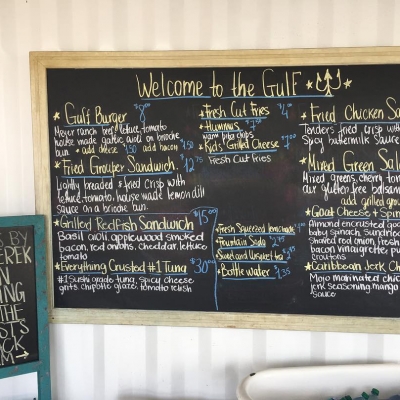 Welcome to the Gulf
Gulf Burger $8
Meyer ranch beef, lettuce, tomato
house made garlic aioli on brioche
bun + add cheese $.50 bacon $1.50
Fried Grouper Sandwich. $12.75
Lightly breaded & fried crisp with
lettuce, tomato, house made lemon dill
sauce on a brioche bun.
Grilled Redfish Sandwich $15
Basil aioli, applewood smoked
bacon, red onions, cheddar, lettuce
tomato
Everything Crusted #1 Tuna $30
#1 sushi grade tuna, spicy cheese
grits, chipotle glaze, tomato relish
Fresh Cut Fries $4
Hummus
warm pita chips
Kids Grilled Cheese
Fresh Cut Fries
Fresh Squeezed lemonade
Fountain Soda
Sweet and Unsweet tea
Bottle Water
Fried Chicken Sa
Tenders fried crisp with
Spicy buttermilk sauce
Mixed Green Sala
Mixed greens, cherry tom
our gluten free balsam
add grilled grou
Goat Cheese & Spin
Almond encrusted goa
baby spinach, sundried
shaved red onion, fresh
bacon vinaigrette, pu
croutons
Caribbean Jerk Ch
Mojo marinated chic
jerk seasoning, mango
sauce
S BY
EREK
N
ING
THE
STS
CK
M